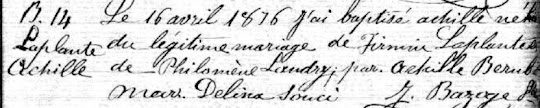 B. 14 Le 16 avril 1876 j'ai baptisé achille né
Laplante du légitime mariage de Firmin Laplante
Achille de Philomène Landry; par. Achille Bérubé
marr. Delina Souci J. Bazoge